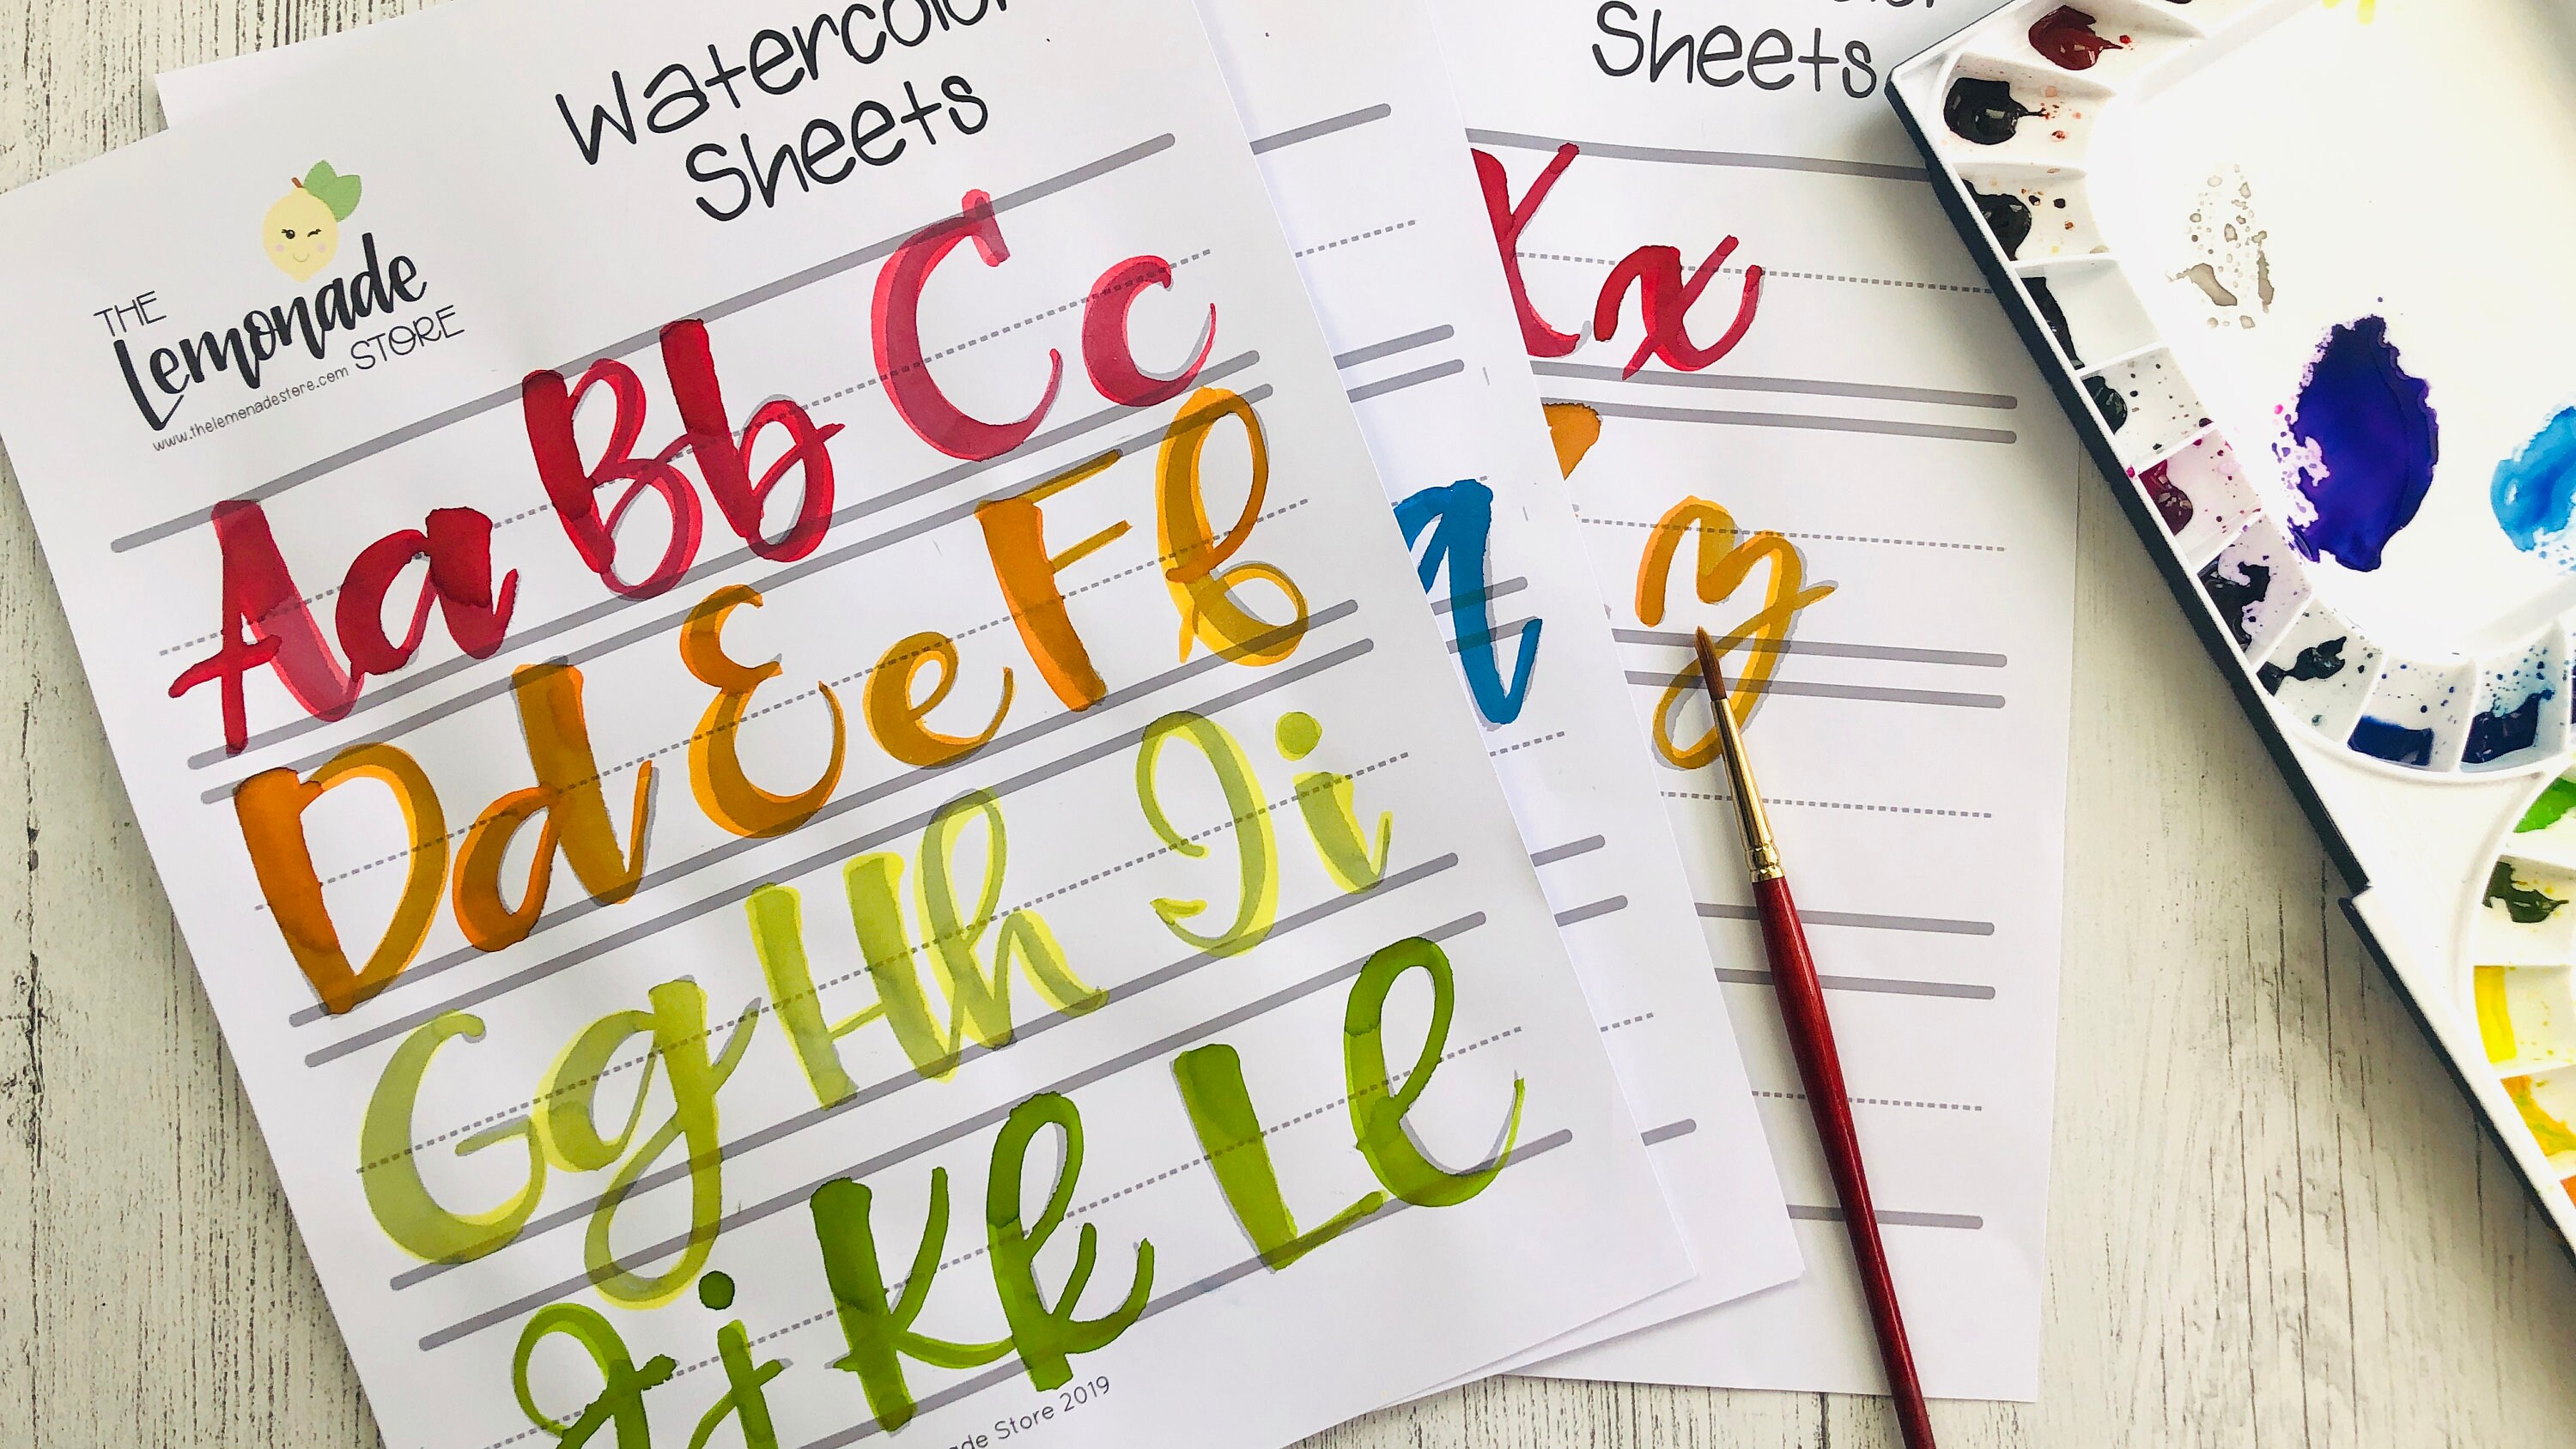 Watercolor
Sheets
THE
Lemonade
STORE
www.thelemonadestore.com
Aa Bb Cc
Dd Ee Ff
Gg Hh Ii
Jj Kk Ll
Store 2019
q
Sheets
Xx
y